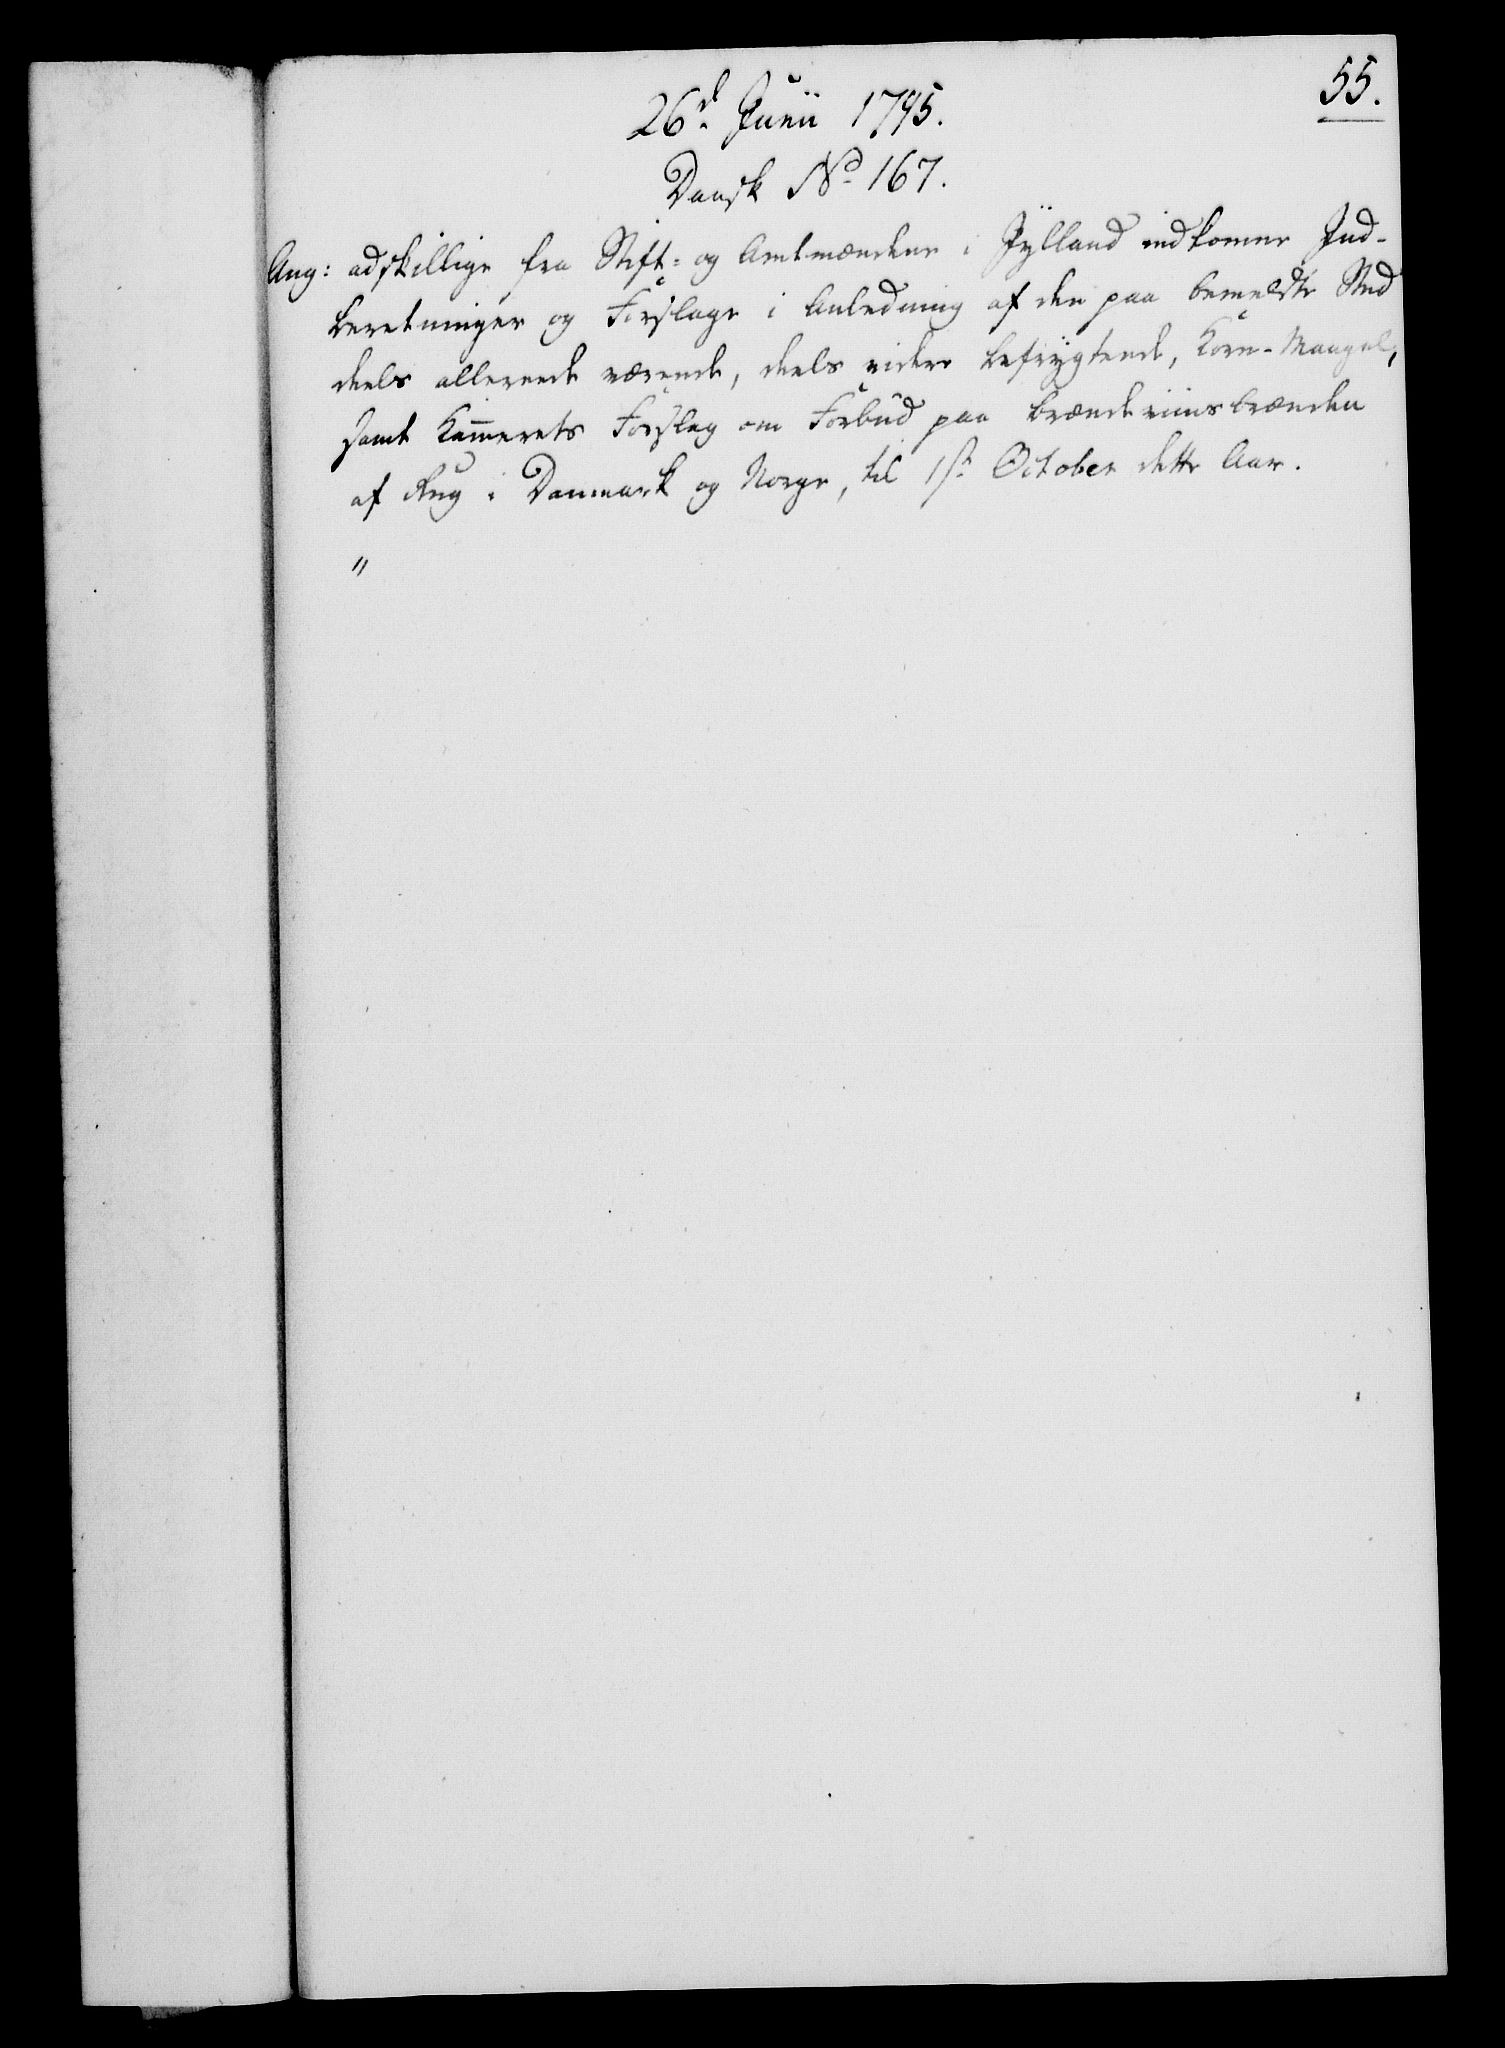 55.
26d Junii 1795.
Dansk No 167.
Ang: adskillige fra Stift- og Amtmændene i Jylland indkomne Ind-
beretninger og Forslage i Anledning af den paa bemeldte Sted
deels allerede værende, deels videre befrygtende, Korn-Mangel,
samt Kammerets Forslag om Forbud paa Brændeviinsbrænden
af Rug i Danmark og Norge, til 1ste October dette Aar.
"